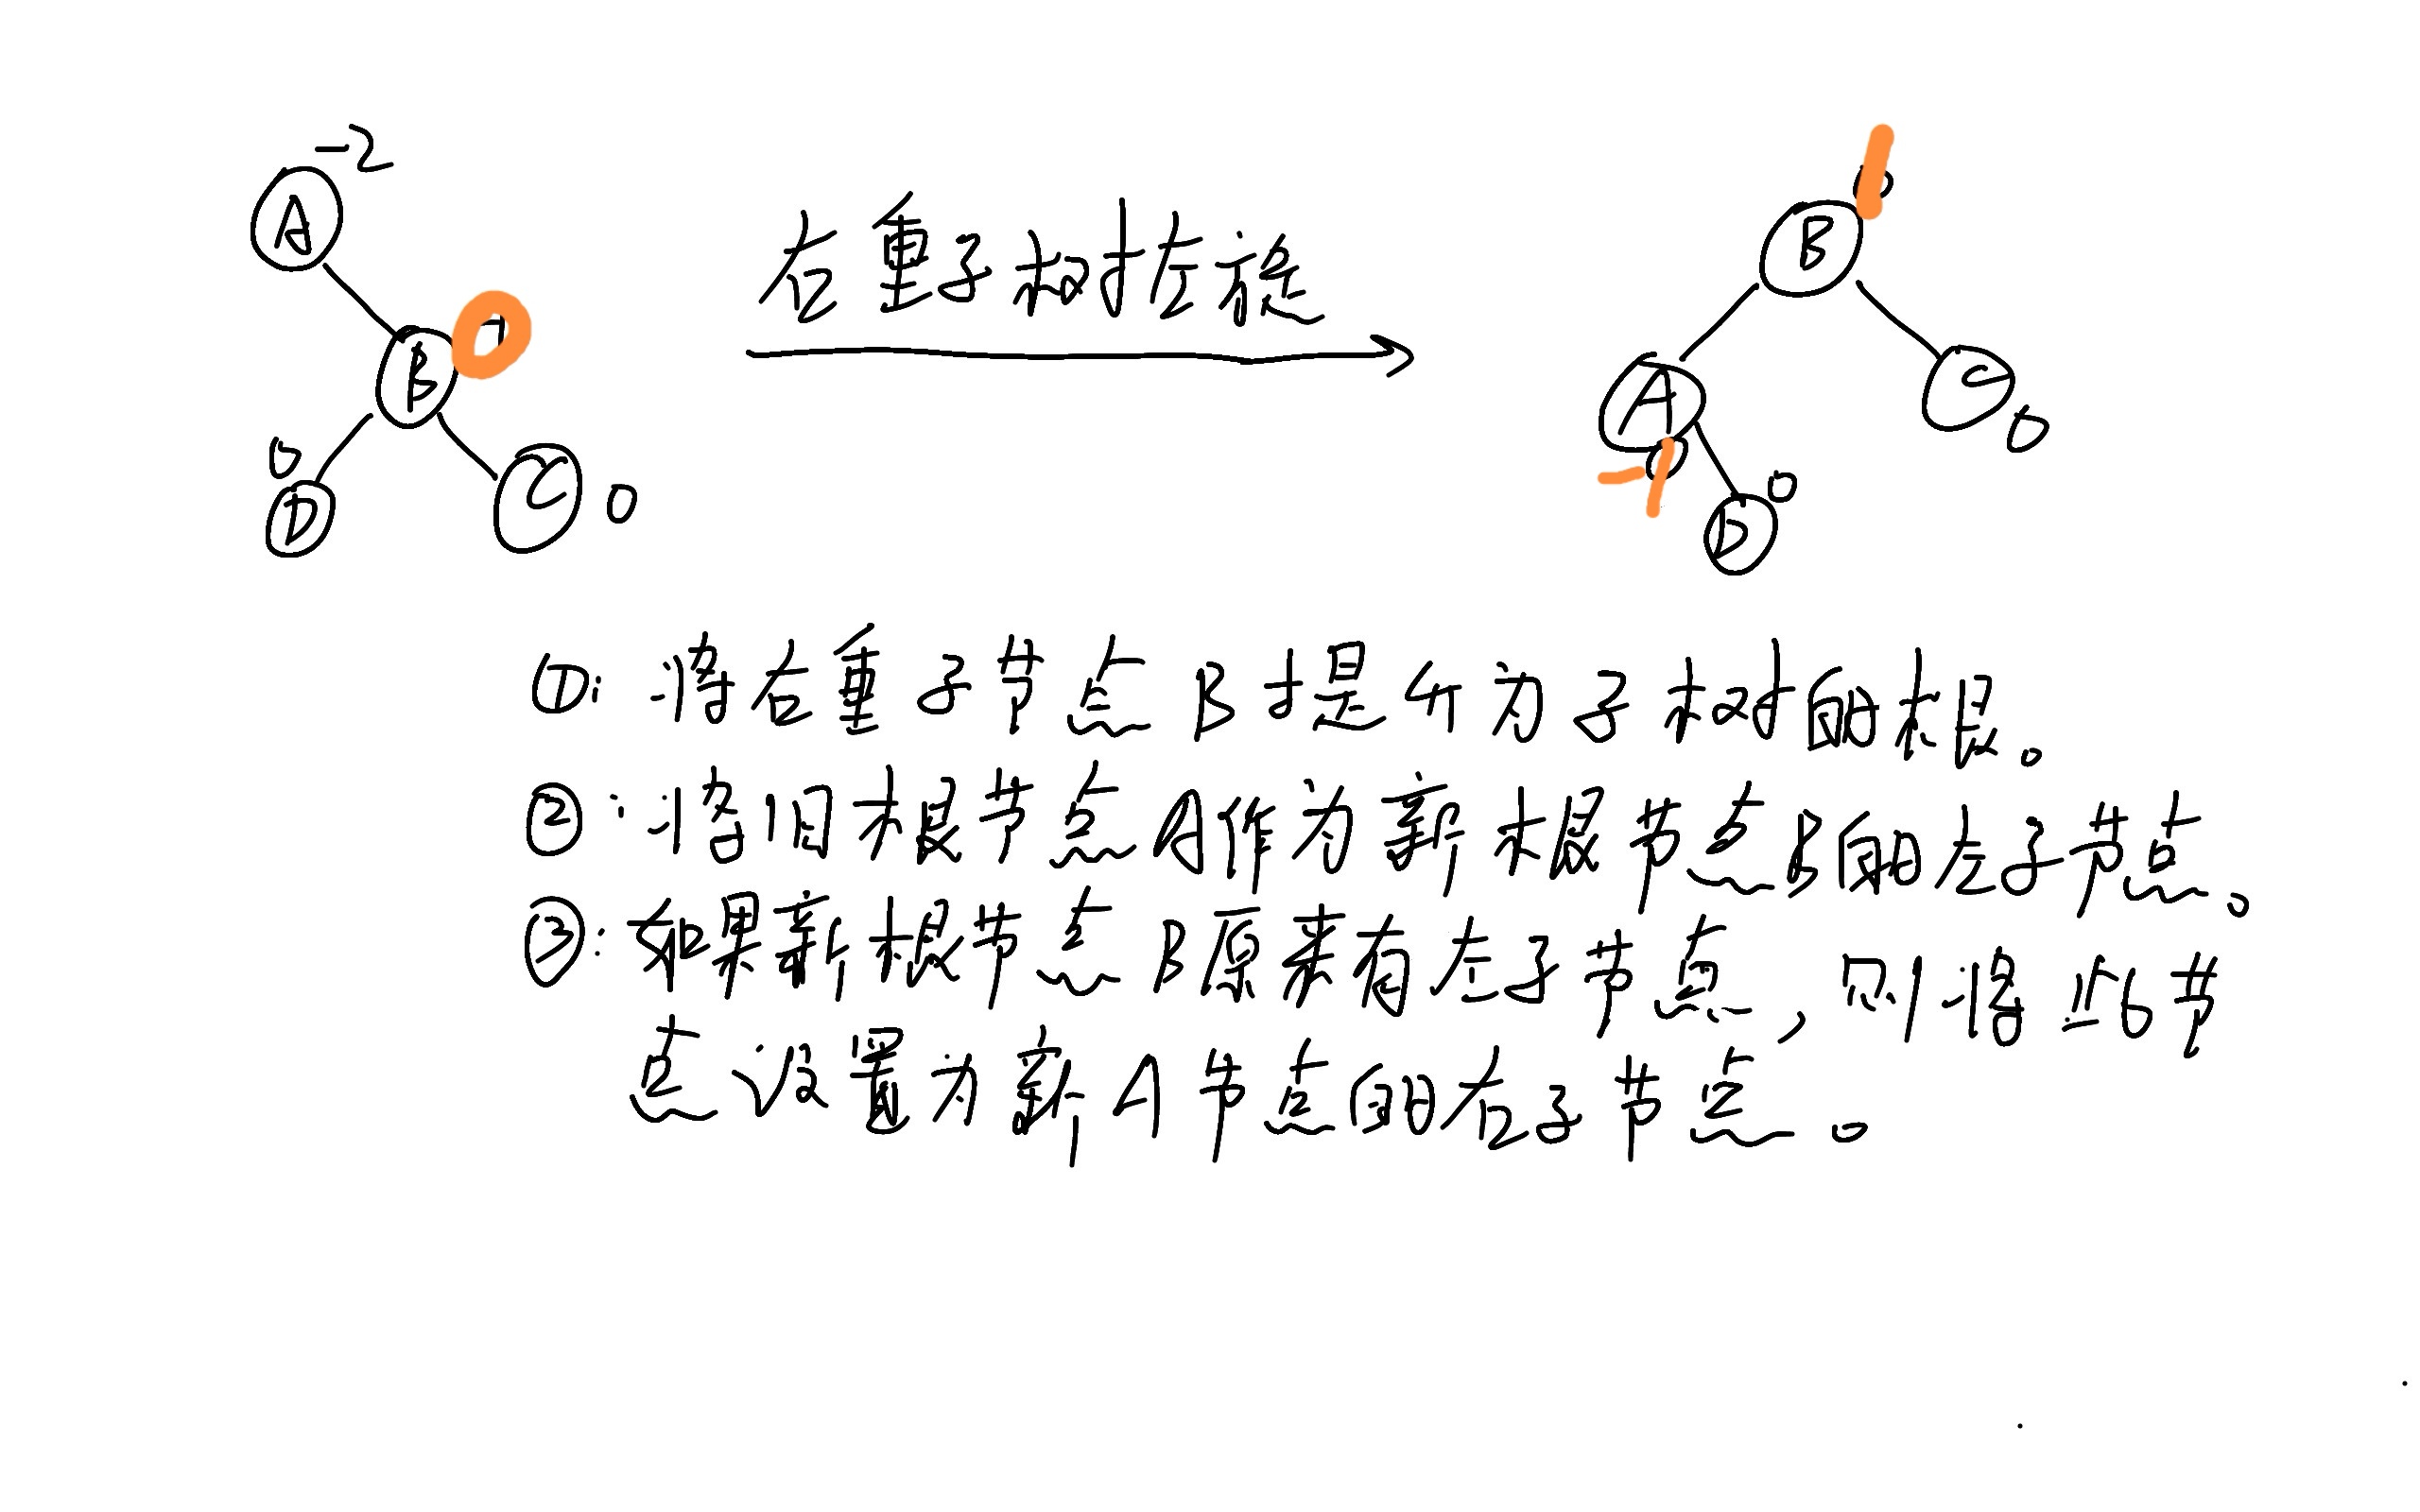 -2
A
B
0
0
D
C
0
右重子树左旋
B
1
A
-1
C
0
0
D
①:将右重子节点B提升为子树的根。
②:将旧根节点A作为新根节点B的左子节点。
③:如果新根节点B原来有左子节点,则将此节
点设置为新A节点的右子节点。